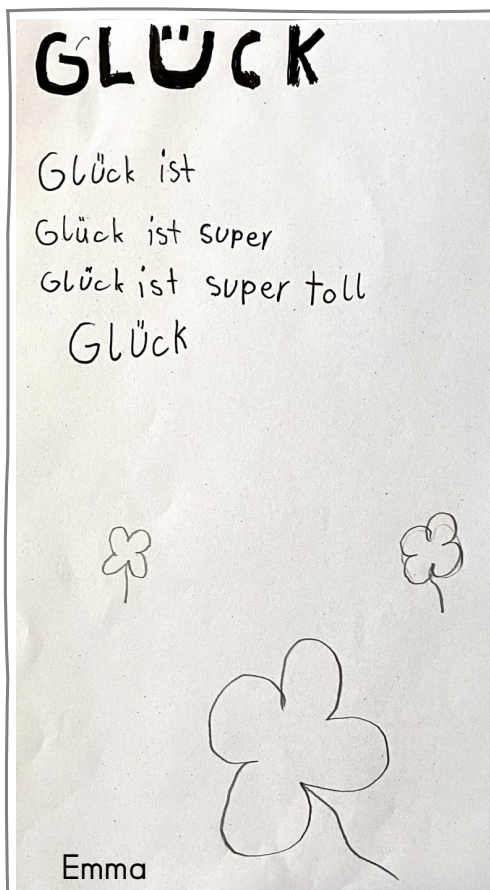 GLÜCK
Glück ist
Glück ist super
Glück ist super toll
Glück
Emma